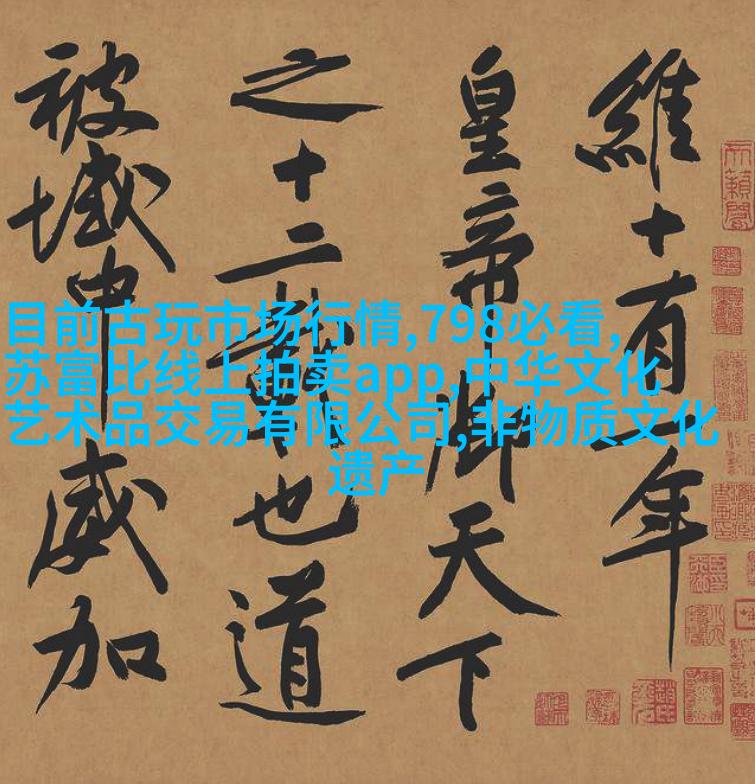 維十有一年
皇帝御天下
之十二載也道
被域中威加
目前古玩市场行情,798必看,
苏富比线上拍卖app,中华文化
艺术品交易有限公司,非物质文化
遗产